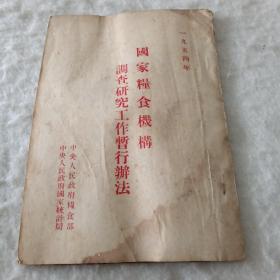 一九五四年
國家糧食機構
調查研究工作暫行辦法
中央人民政府糧食部
中央人民政府國家統計局